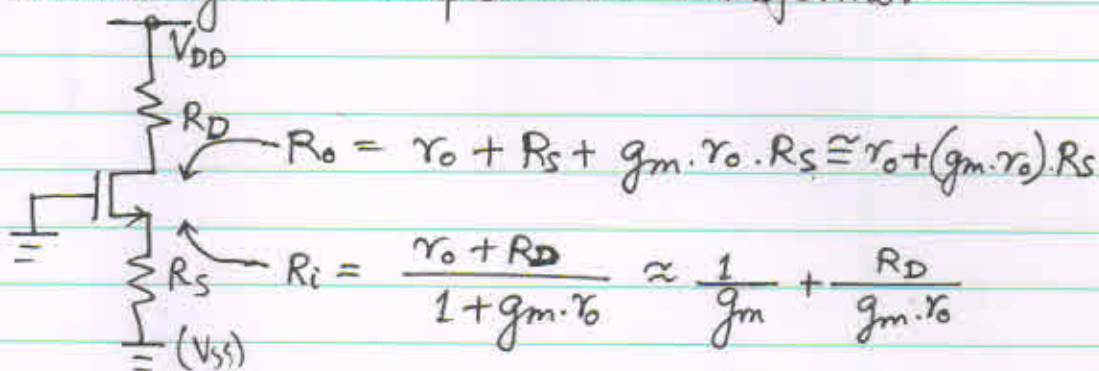 V_DD
R_D
R_o = r_o + R_S + g_m . r_o . R_S ≅ r_o + (g_m . r_o) . R_S
R_S
R_i = (r_o + R_D) / (1 + g_m . r_o) ≈ 1/g_m + R_D/(g_m . r_o)
(V_SS)